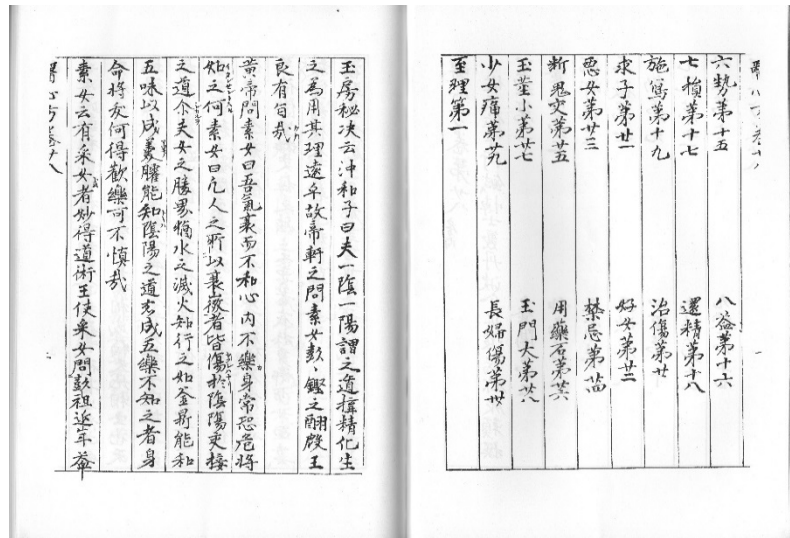 六勢第十五　八益第十六
七損第十七　還精第十八
施寫第十九　治傷第廿
求子第廿一　好女第廿二
惡女第廿三　禁忌第廿四
斷鬼交第廿五　用藥石第廿六
玉莖小第廿七　玉門大第廿八
少女痛第廿九　長婦傷第卅
至理第一
玉房秘決云沖和子曰夫一陰一陽謂之道搆精化生
之為用其理遠乎故帝軒之問素女彭、鏗之酬殷王
良有旨哉
黃帝問素女曰吾氣衰而不和心內不樂身常恐危將
如之何素女曰凡人之所以衰微者皆傷於陰陽交接
之道尒夫女之勝男猶水之滅火知行之如釜鼎能和
五味以成羹臛能知陰陽之道悉成五樂不知之者身
命將夭何得歡樂可不慎哉
素女云有采女者妙得道術王使采女問彭祖延年益
醫心方卷廿八